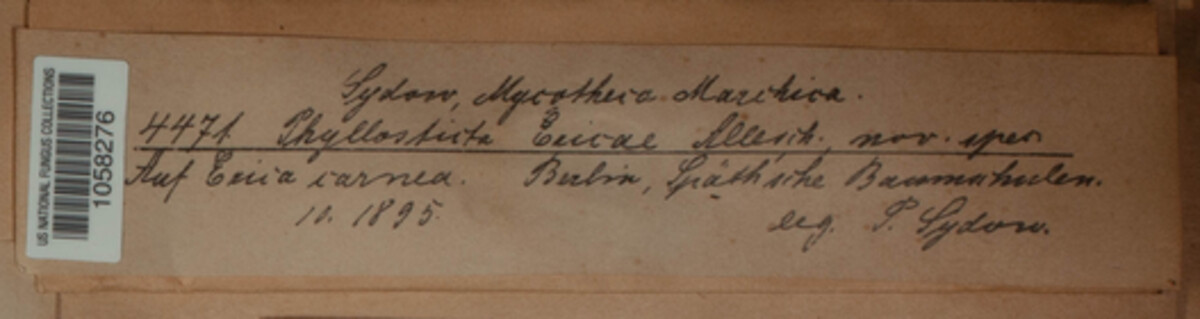 US NATIONAL FUNGUS COLLECTIONS
1058276
Sydow, Mycotheca Marchica.
4471 Phyllosticta Ericae Allesch. nov. spec.
Auf Erica carnea. Berlin, Späth'sche Baumschulen.
10. 1895. leg. P. Sydow.